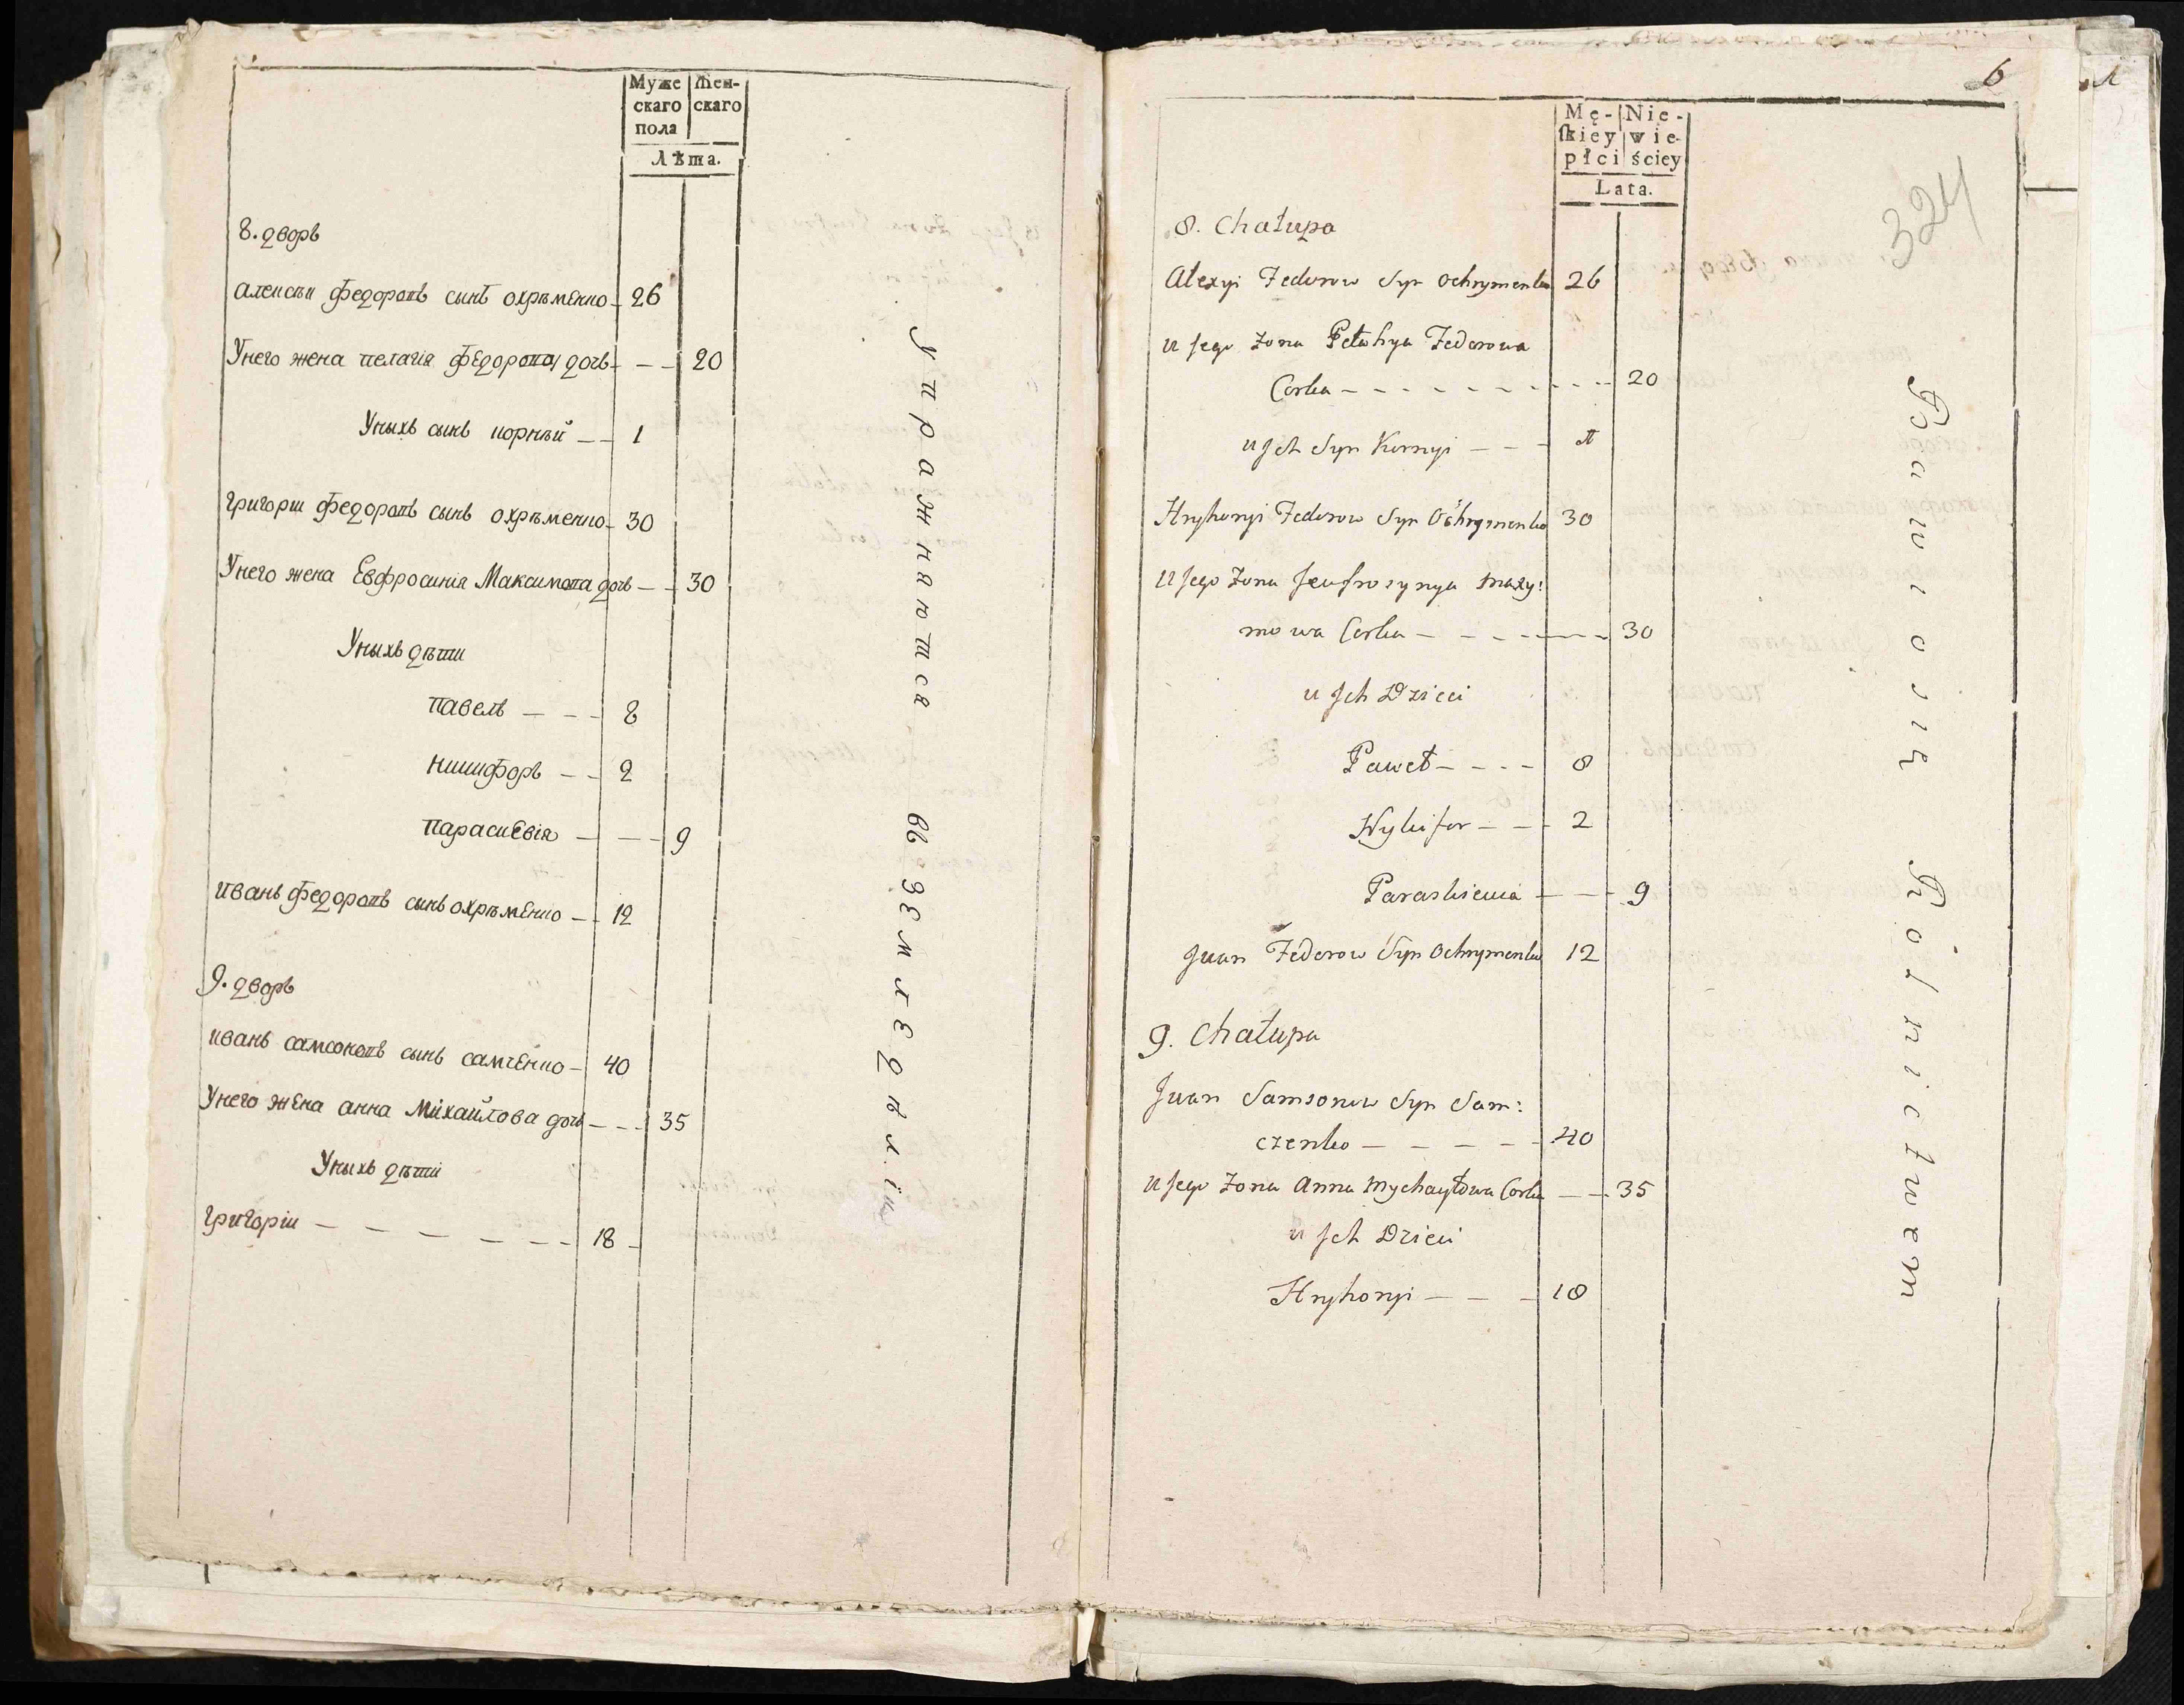 Муже скаго пола
Жен- скаго
Лѣта.
8. дворъ
алексѣи федоровъ сынъ охрѣменко 26
Унего жена пелагiя федорова дочь 20
Уныхъ сынъ корнѣй 1
григории федоровъ сынъ охрѣменко 30
Унего жена Евфросинiя Максимова дочь 30
Уныхъ дѣти
павелъ 8
никифоръ 2
параскЕвiя 9
иванъ федоровъ сынъ охрѣмЕнко 12
9. дворъ
иванъ самсоновъ сынъ самчЕнко 40
Унего жЕна анна Михайлова дочь 35
Уныхъ дѣти
григорiи 18
Упражняются въ земледѣлiи
6
324
Mę- skiey płci
Nie- wie- ściey
Lata.
8. Chałupa
Alexyi Fedorow Syn Ochrymenko 26
u Jego Zona Pełahya Fedorowa
Corka 20
u Jch Syn Kornyi 1
Hryhoryi Fedorow Syn Ochrymenko 30
u Jego Zona Jeufrosynya Maxy:
mowa Corka 30
u Jch Dzieci
Paweł 8
Nykifor 2
Paraskiewia 9
Jwan Fedorow Syn Ochrymenko 12
9. Chałupa
Jwan Samsonow Syn Sam:
czenko 40
u Jego Zona Anna Mychayłowa Corka 35
u Jch Dzieci
Hryhoryi 18
Bawią się Rolnictwem